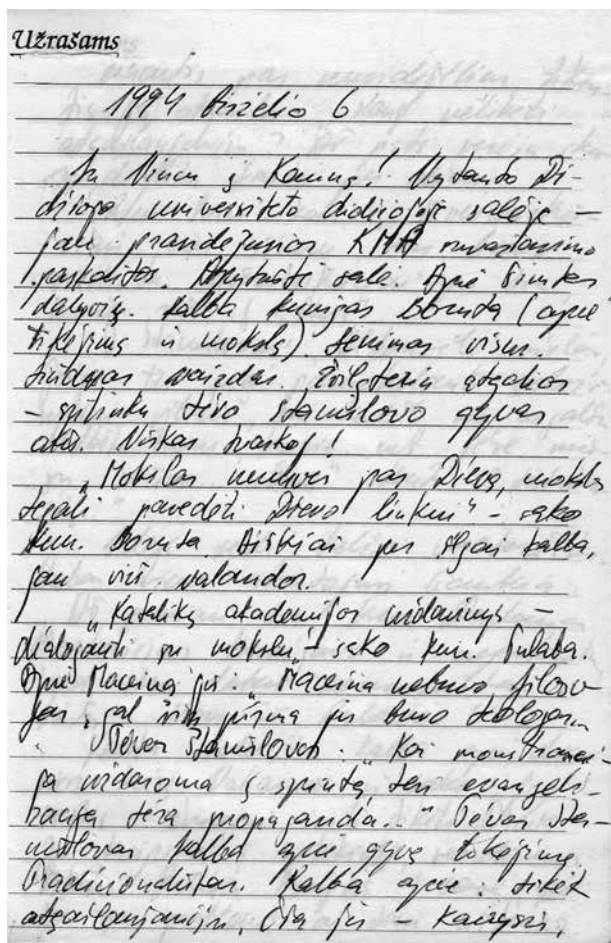 Užrašams
1994 birželio 6
Su Vincu į Kauną! Vytauto Di-
džiojo universiteto didžiojoje salėje –
jau prasidėjusios KMA suvažiavimo
paskaitos. Apytuštė salė. Apie šimtas
dalyvių. Kalba kunigas Boruta (apie
tikėjimą ir mokslą). Senimas visur.
Liūdnas vaizdas. Žvilgteriu atgalios
– sutinku tėvo Stanislovo gyvas
akis. Viskas tvarkoj!
„Mokslas nenuves pas Dievą, mokslas
tegali pavedėti Dievo linkui“ – sako
kun. Boruta. Aiškiai per ilgai kalba,
jau virš valandos.
„Katalikų akademijos uždavinys –
dialoguoti su mokslu“ – sako kun. Rulaba.
Apie Maceiną jis: „Maceina nebuvo filoso-
fas, gal visų pirma jis buvo teologas...
Tėvas Stanislovas. „Kai monstranci-
ja uždaroma į spintą, ten evangeli-
ja tėra propaganda...“ Tėvas Sta-
nislovas kalba apie gyvą tikėjimą.
Tradicionalistas. Kalba apie: tikėt
atgailaujančiu. Čia jis –